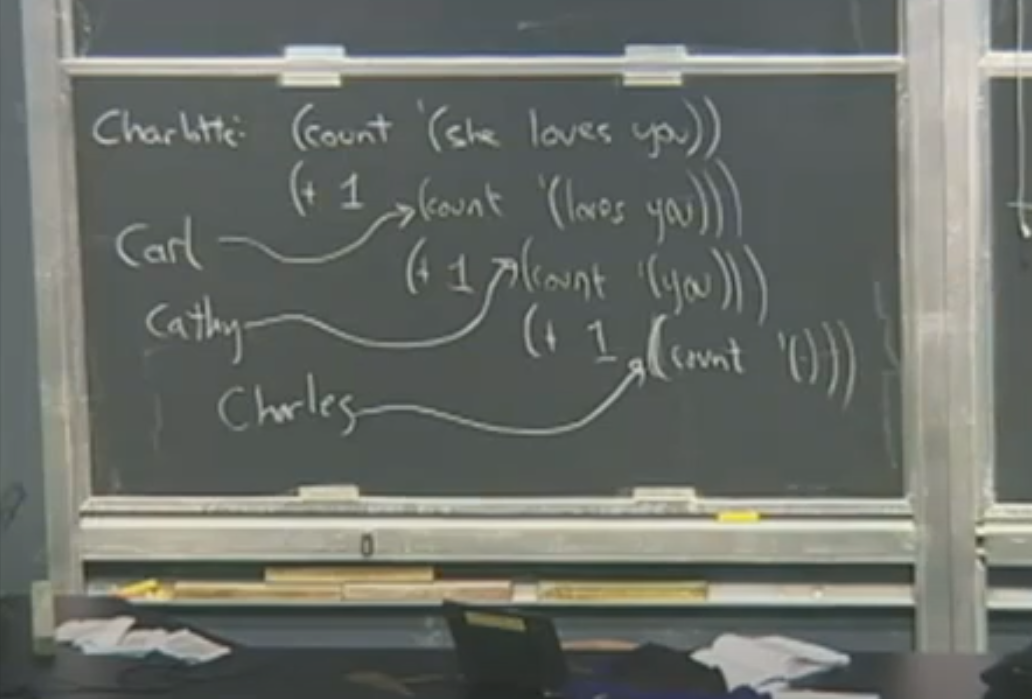 Charlotte: (count '(she loves you))
(+ 1 (count '(loves you)))
Carl
(+ 1 (count '(you)))
Cathy
(+ 1 (count '()))
Charles
0